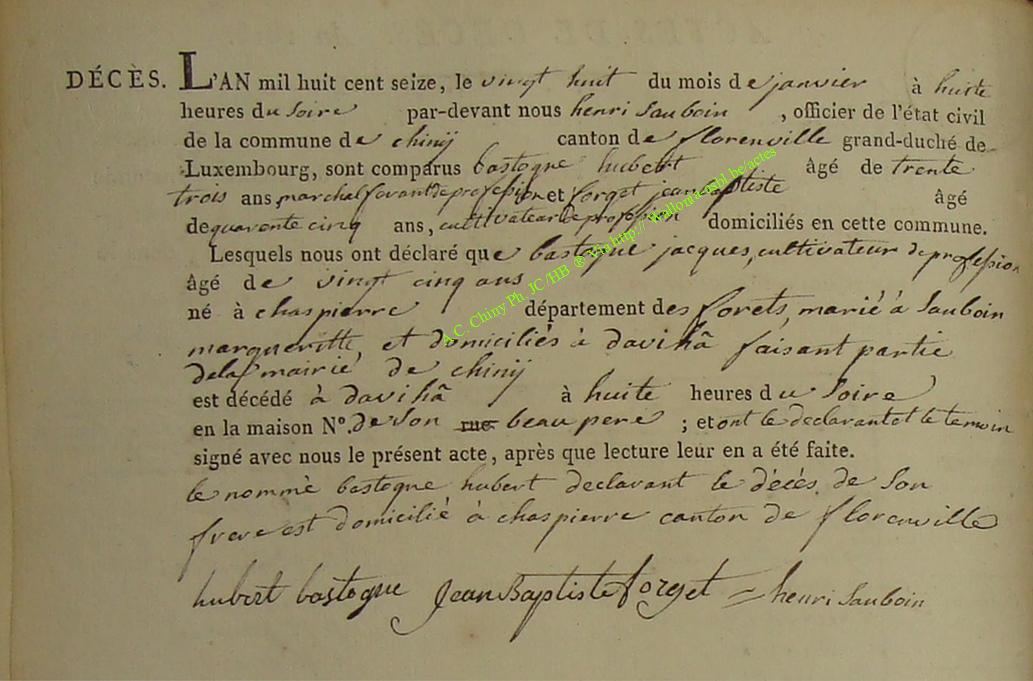 DÉCÈS. L'AN mil huit cent seize, le vingt huit du mois de janvier à huite
heures du soire par-devant nous henri Sauboin , officier de l'état civil
de la commune de chinÿ canton de florenville grand-duché de
Luxembourg, sont comparus bastogne hubert âgé de trente
trois ans marchal ferant de profession et forget jean baptiste âgé
de quarente cinq ans, cultivateur de profession domiciliés en cette commune.
Lesquels nous ont déclaré que bastogne jacques, cultivateur de profession
âgé de vingt cinq ans
né à chaspierre département des forets, marié à Sauboin
margueritte, et domiciliés à davihâ faisant partie
de la mairie de chinÿ
est décédé à davihâ à huite heures du soire
en la maison N°. de son rue beau pere ; et ont le declarant et le temoin
signé avec nous le présent acte, après que lecture leur en a été faite.
le nommé bastogne hubert declarant le décés de son
frere est domicilié à chaspierre canton de florenville
hubert bastogne Jean Baptiste forget henri Sauboin
A.C. Chiny Ph JC/HB ® Via http://Wallonia.asbl.be/actes